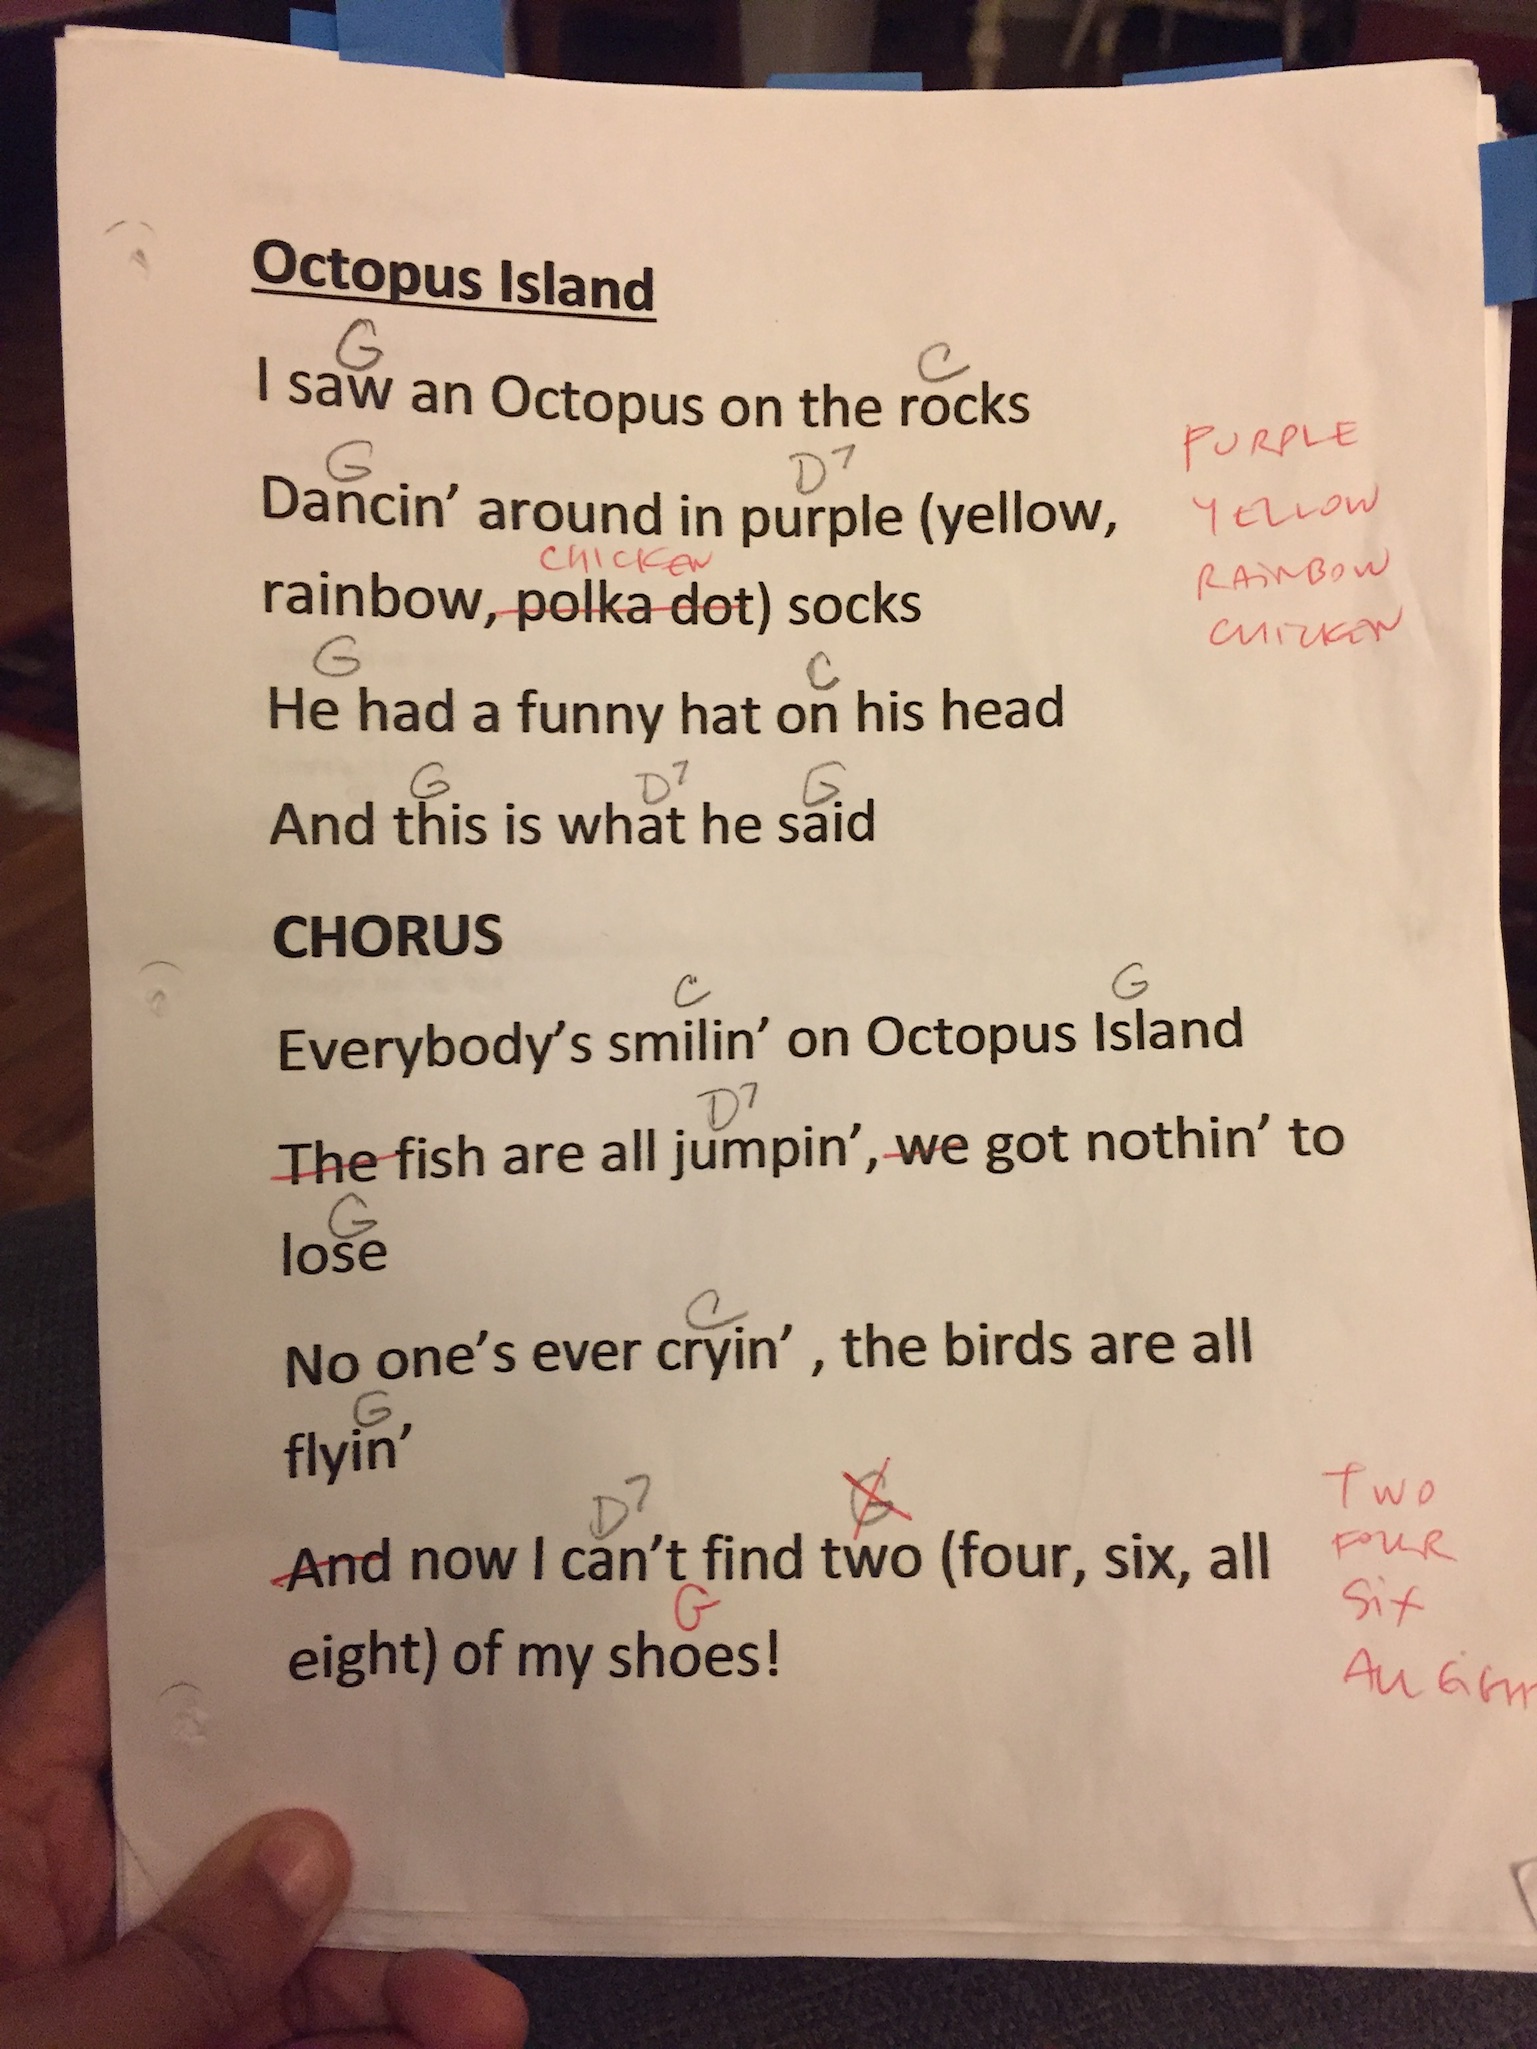 Octopus Island
G C
I saw an Octopus on the rocks
G D7
Dancin’ around in purple (yellow,
CHICKEN
rainbow, polka dot) socks
PURPLE
YELLOW
RAINBOW
CHICKEN
G C
He had a funny hat on his head
G D7 G
And this is what he said
CHORUS
C G
Everybody’s smilin’ on Octopus Island
D7
The fish are all jumpin’, we got nothin’ to
G
lose
C
No one’s ever cryin’ , the birds are all
G
flyin’
D7 G
And now I can’t find two (four, six, all
G
eight) of my shoes!
TWO
FOUR
Six
ALL EIGHT